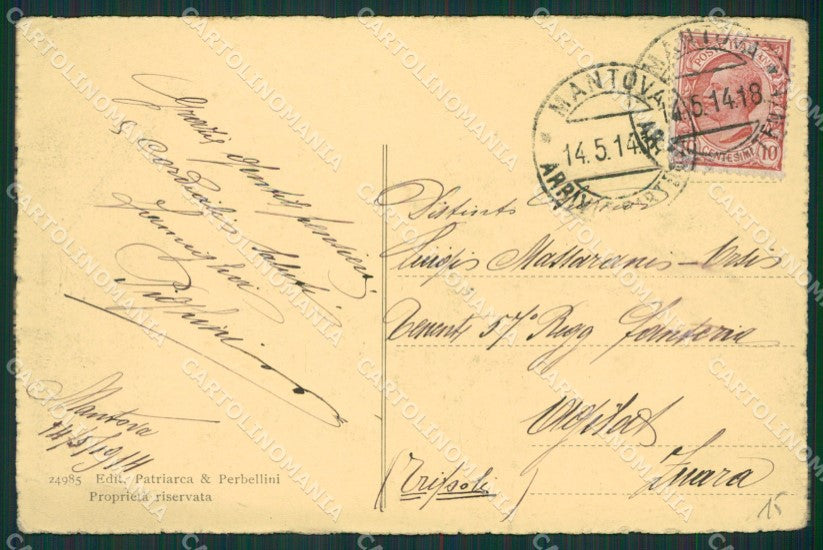 Grazie
& Cordiali Saluti
Famiglia
Mantova
14/5/1914
24985 Edit. Patriarca & Perbellini
Proprietà riservata
MANTOVA
14.5.14
ARRIVI
MANTOVA
14.5.14.18
POSTE ITALIANE
CENTESIMI 10
Distinto Signor
Luigi Massarani-
Tenente 57° Regg Fanteria
Zuara
(Tripoli)
15
CARTOLINOMANIA